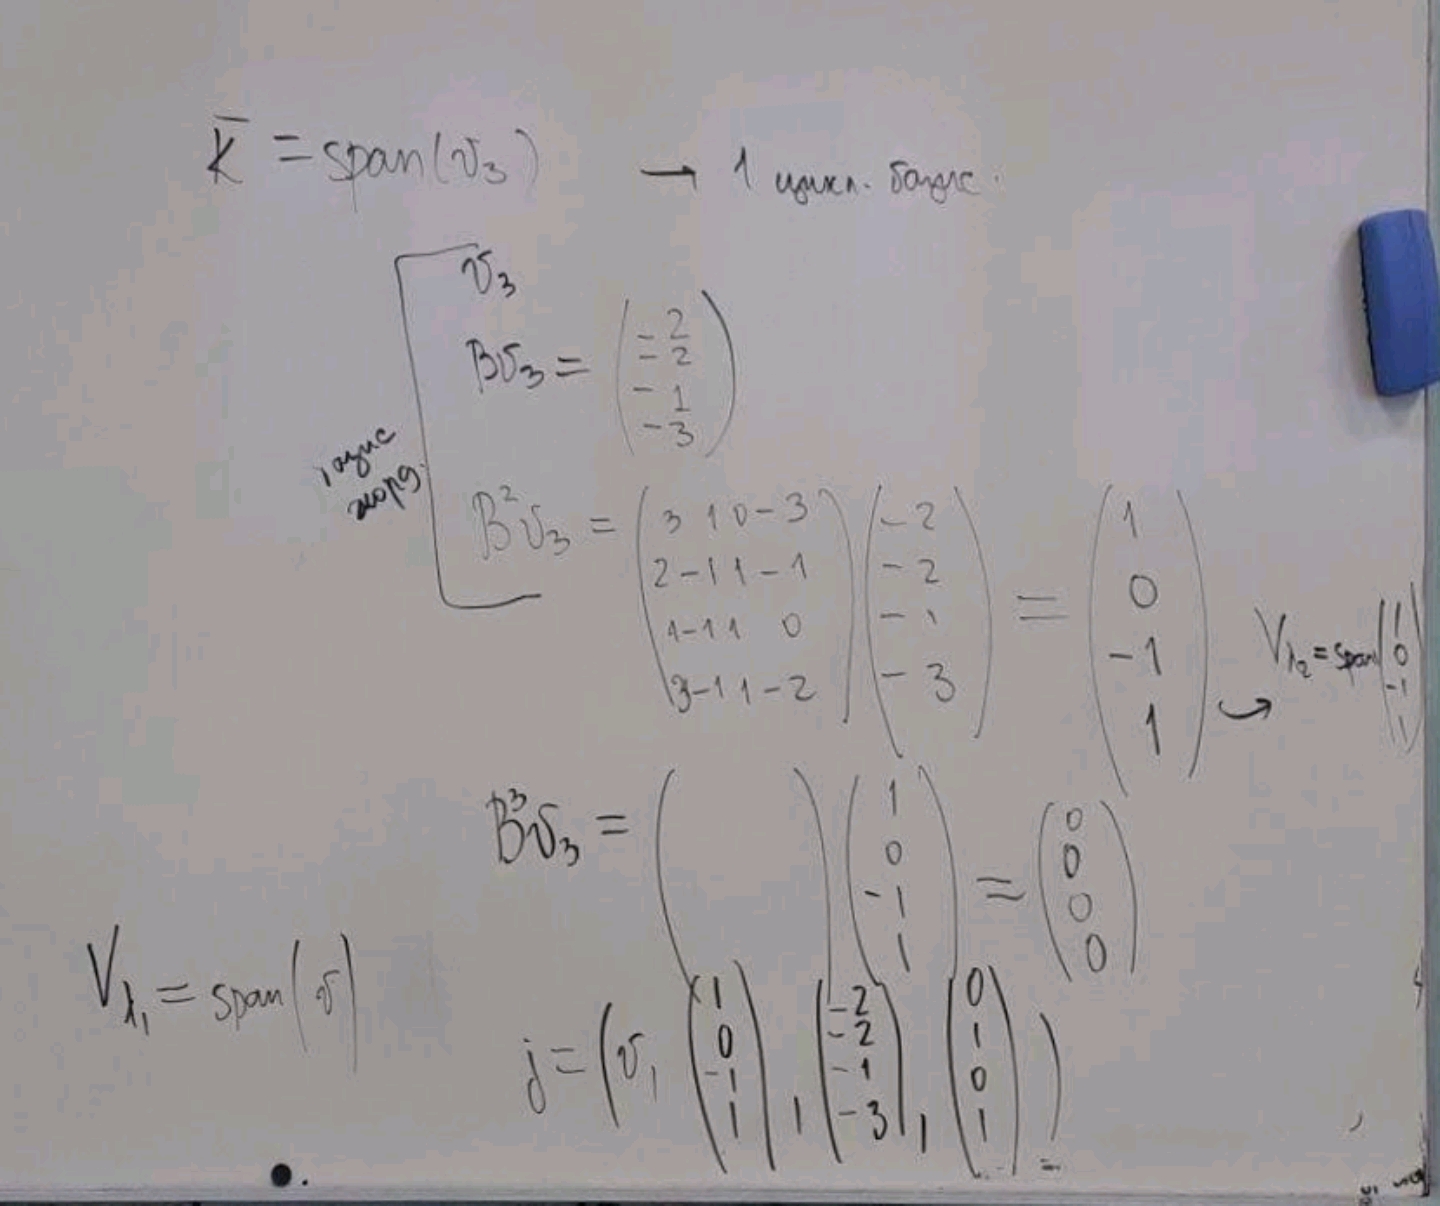 K̅ = span(v₃) → 1 цикл. базис.
v₃
Bv₃ = (-2 -2 -1 -3)
базис
жорд.
B²v₃ = (3 1 0 -3
2 -1 1 -1
1 -1 1 0
3 -1 1 -2) (-2 -2 -1 -3) = (1 0 -1 1) → V_λ₂ = span(1 0 -1 1)
B³v₃ = ( ) (1 0 -1 1) = (0 0 0 0)
V_λ₁ = span(v)
j = (v, (1 0 -1 1), (-2 -2 -1 -3), (0 1 0 1))